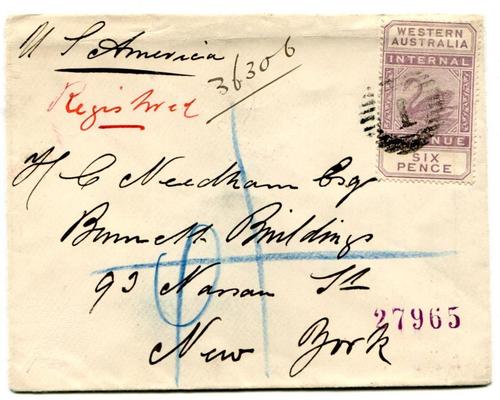 U S America
36306
Registered
WESTERN
AUSTRALIA
INTERNAL
NUE
SIX
PENCE
H C Needham Esq
Bennett Buildings
93 Nassau St
27965
New York